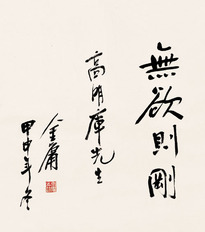 無欲則剛
高明庫先生
金庸
甲申年冬